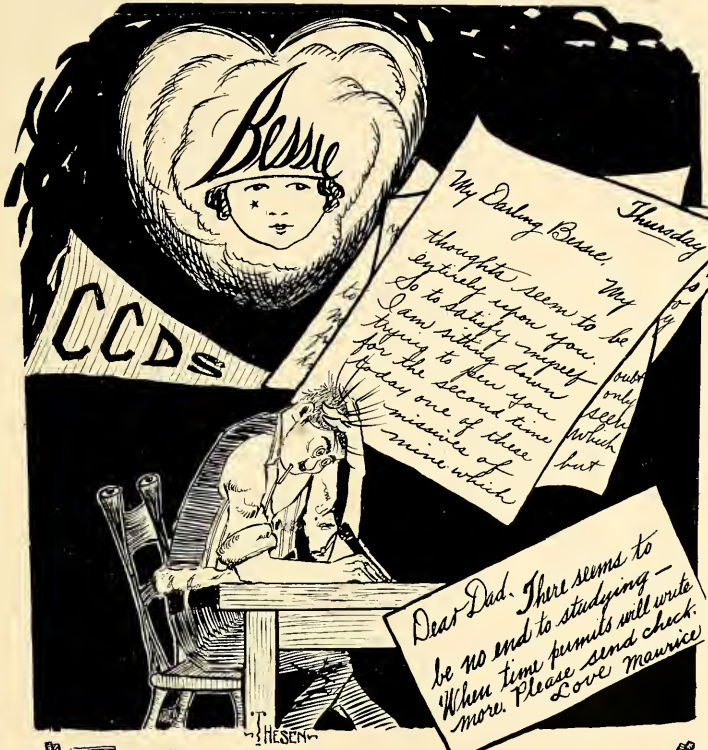 Bessie
CCDS
Thursday
My Darling Bessie,
My
thoughts seem to be
entirely upon you
So to satisfy myself
I am sitting down
trying to pen you
for the second time
today one of these
missives of
mine which
oubt
only
seen
which
but
Dear Dad. There seems to
be no end to studying —
When time permits will write
more. Please send check.
Love Maurice
THESEN